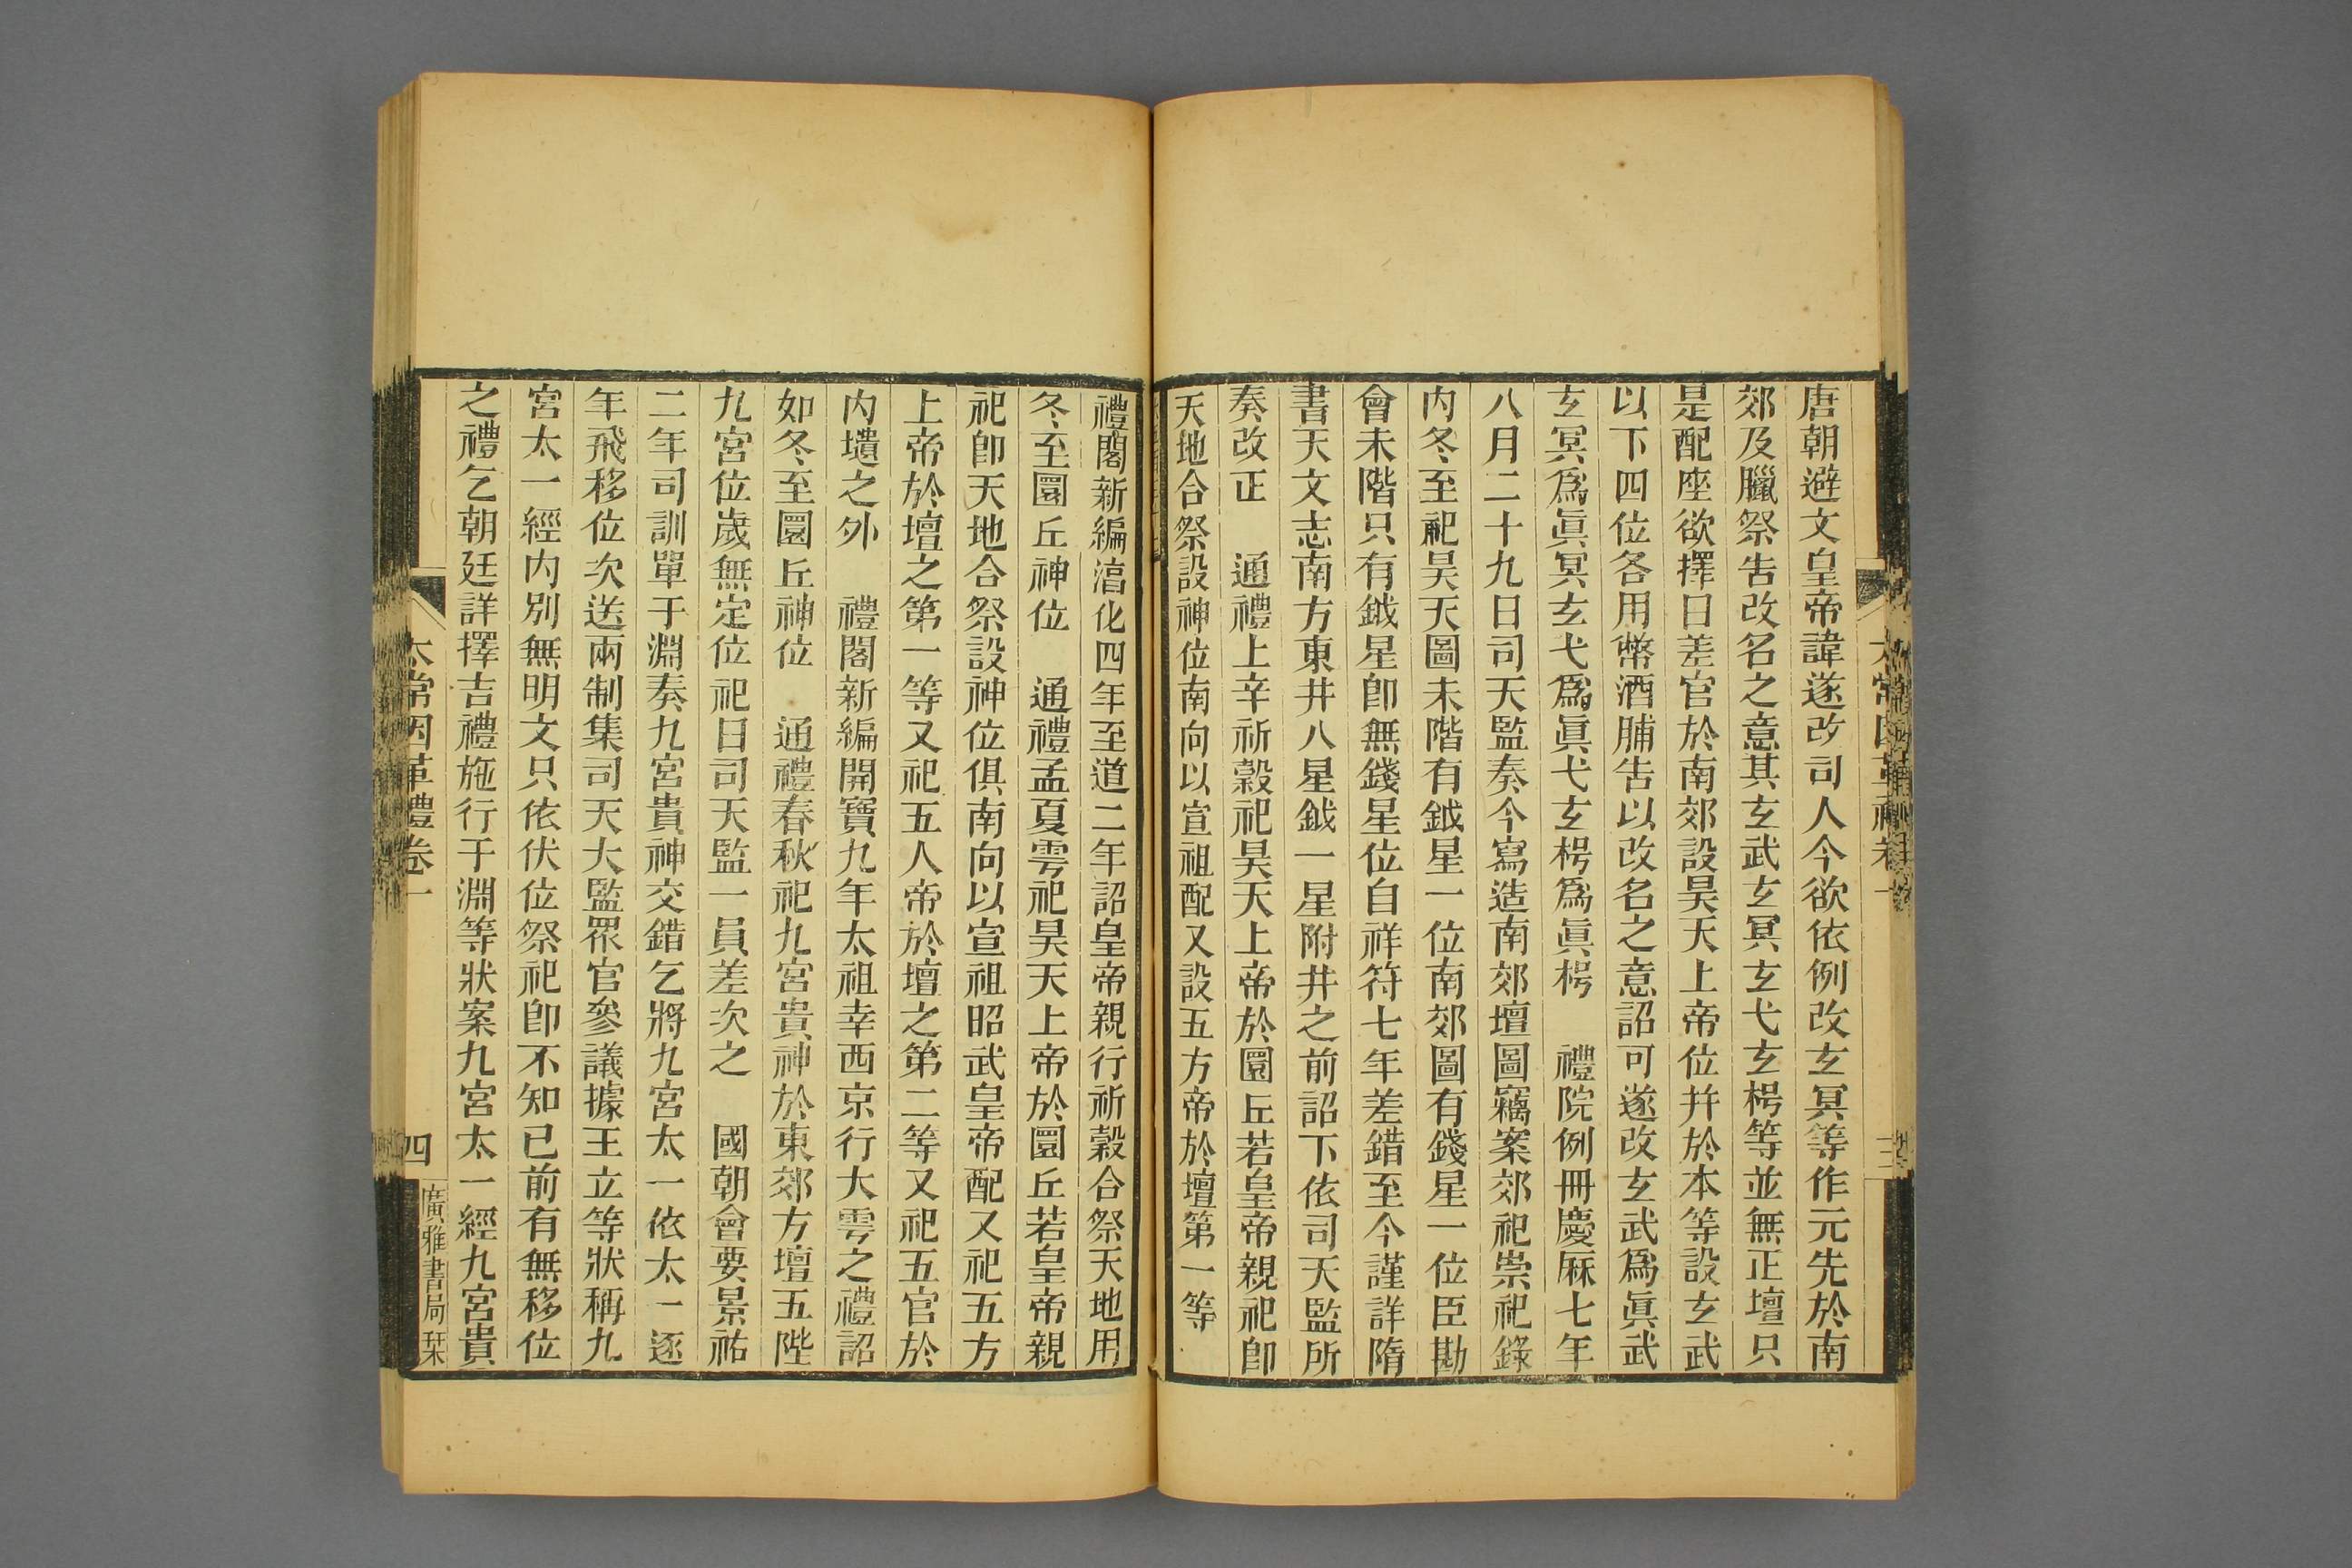 唐朝避文皇帝諱遂改司人今欲依例改玄冥等作元先於南
郊及臘祭告改名之意其玄武玄冥玄弋玄枵等並無正壇只
是配座欲擇日差官於南郊設昊天上帝位幷於本等設玄武
以下四位各用幣酒脯告以改名之意詔可遂改玄武爲眞武
玄冥爲眞冥玄弋爲眞弋玄枵爲眞枵　禮院例冊慶厤七年
八月二十九日司天監奏今寫造南郊壇圖竊案郊祀崇祀錄
內冬至祀昊天圖未階有鉞星一位南郊圖有錢星一位臣勘
會未階只有鉞星卽無錢星位自祥符七年差錯至今謹詳隋
書天文志南方東井八星鉞一星附井之前詔下依司天監所
奏改正　通禮上辛祈穀祀昊天上帝於圜丘若皇帝親祀卽
天地合祭設神位南向以宣祖配又設五方帝於壇第一等
禮閣新編湻化四年至道二年詔皇帝親行祈穀合祭天地用
冬至圜丘神位　通禮孟夏雩祀昊天上帝於圜丘若皇帝親
祀卽天地合祭設神位俱南向以宣祖昭武皇帝配又祀五方
上帝於壇之第一等又祀五人帝於壇之第二等又祀五官於
內壝之外　禮閣新編開寶九年太祖幸西京行大雩之禮詔
如冬至圜丘神位　通禮春秋祀九宮貴神於東郊方壇五陛
九宮位歲無定位祀日司天監一員差次之　國朝會要景祐
二年司訓單于淵奏九宮貴神交錯乞將九宮太一依太一逐
年飛移位次送兩制集司天大監眾官參議據王立等狀稱九
宮太一經內別無明文只依伏位祭祀卽不知已前有無移位
之禮乞朝廷詳擇吉禮施行于淵等狀案九宮太一經九宮貴
太常因革禮卷一
四
廣雅書局栞